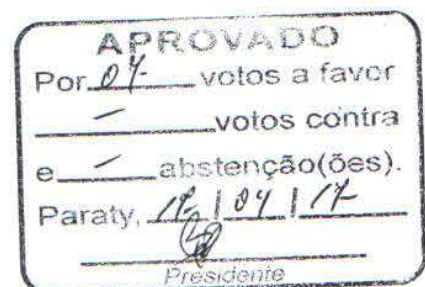 APROVADO
Por 07 votos a favor
— votos contra
e — abstenção(ões).
Paraty, / 04 / 17
Presidente